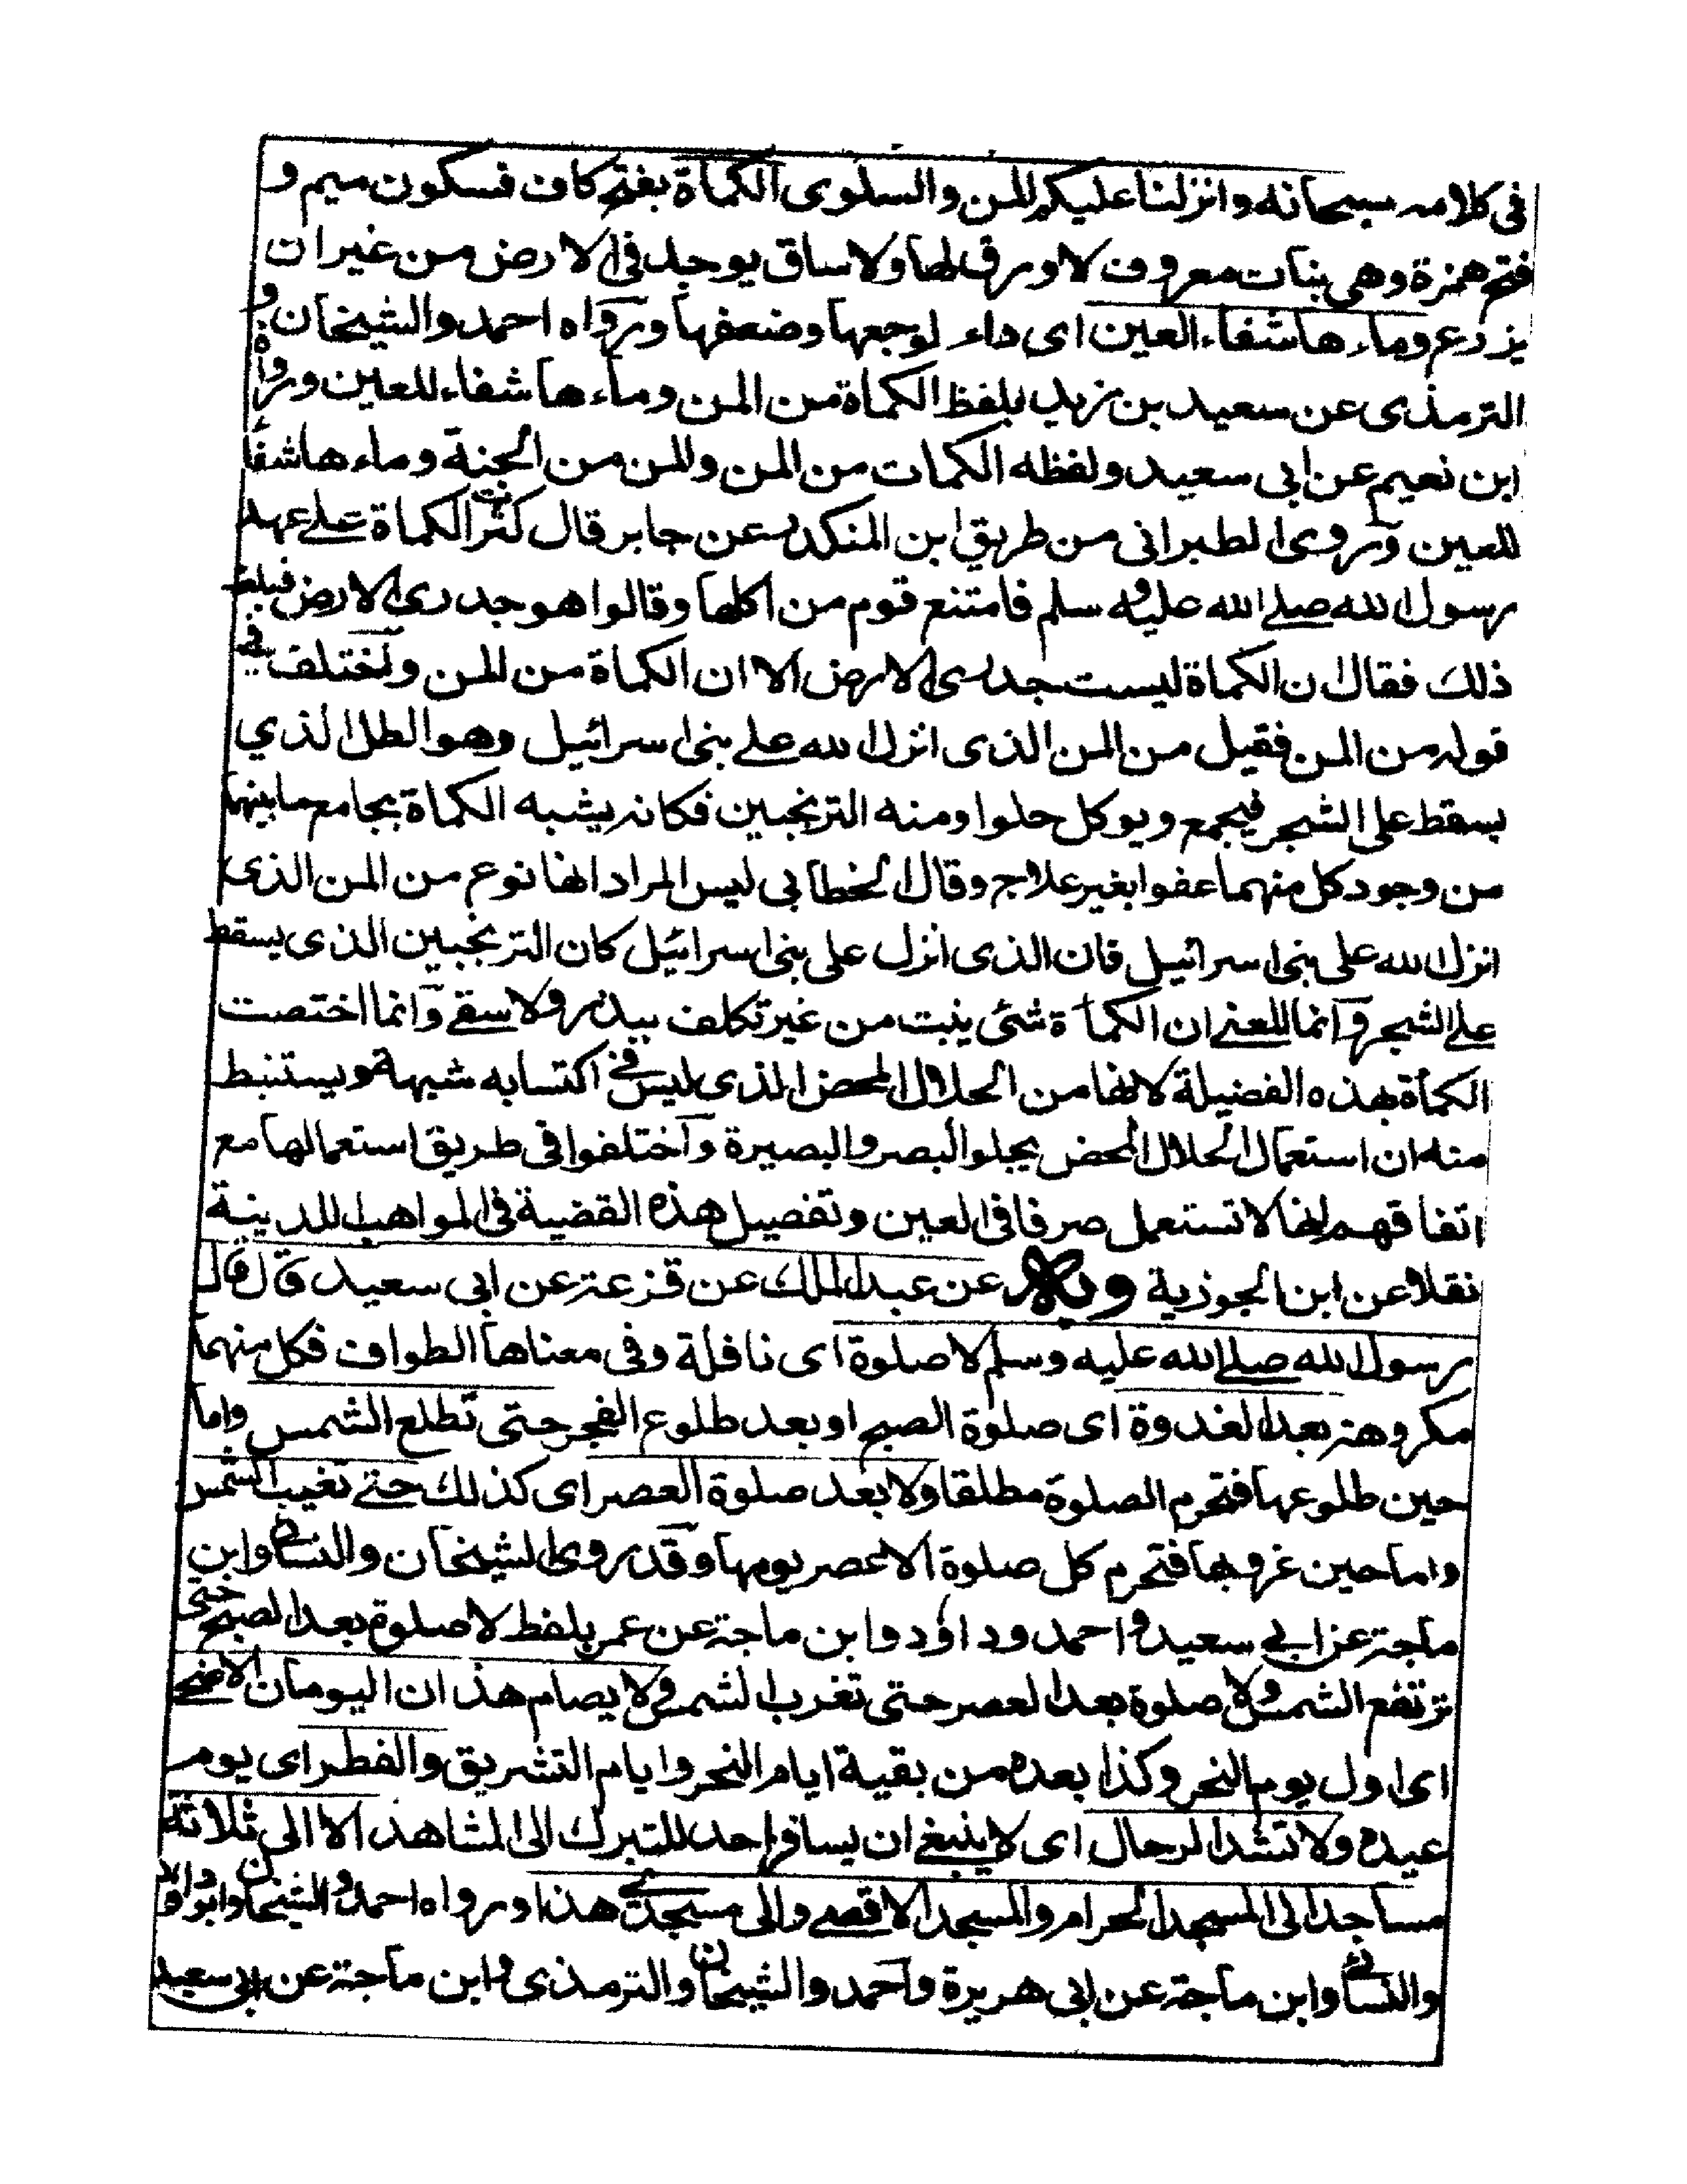 فى كلامه سبحانه وانزلنا عليكم المن والسلوى الكماة بفتح كاف فسكون ميم و
فتح همزة وهى بنات معروف لا ورق لها ولا ساق يوجد فى الارض من غير ان
يزرع وماءها شفاء العين اى داء لوجعها وضعفها ورواه احمد والشيخان و
الترمذى عن سعيد بن زيد بلفظ الكماة من المن وماءها شفاء للعين ورواه
ابن نعيم عن ابى سعيد ولفظه الكمات من المن والمن من الجنة وماءها شفاء
للعين وروى الطبرانى من طريق ابن المنكدر عن جابر قال كثرت الكماة على عهد
رسول الله صلى الله عليه وسلم فامتنع قوم من اكلها وقالوا هو جدرى الارض فبلغه
ذلك فقال ان الكماة ليست جدرى الارض الا ان الكماة من المن واختلف فى
قوله من المن فقيل من المن الذى انزل الله على بنى اسرائيل وهو الطل الذي
يسقط على الشجر فيجمع ويوكل حلوا ومنه الترنجبين فكانه يشبه الكماة بجامع ما بينهما
من وجود كل منهما عفوا بغير علاج وقال الخطابى ليس المراد انها نوع من المن الذى
انزل الله على بنى اسرائيل فان الذى انزل على بنى اسرائيل كان الترنجبين الذى يسقط
على الشجر وانما المعنى ان الكماة شئ ينبت من غير تكلف ببذر ولا سقى وانما اختصت
الكمأة بهذه الفضيلة لانها من الحلال المحض الذى ليس فى اكتسابه شبهة ويستنبط
منه ان استعمال الحلال المحض يجلو البصر والبصيرة واختلفوا فى طريق استعمالها مع
اتفاقهم انها لا تستعمل صرفا فى العين وتفصيل هذه القضية فى المواهب اللدينة
نقلا عن ابن الجوزية وبه عن عبد الملك عن قزعة عن ابى سعيد قال قال
رسول الله صلى الله عليه وسلم لا صلوة اى نافلة وفى معناها الطواف فكل منهما
مكروهة بعد الغدوة اى صلوة الصبح او بعد طلوع الفجر حتى تطلع الشمس واما
حين طلوعها فتحرم الصلوة مطلقا ولا بعد صلوة العصر اى كذلك حتى تغيب الشمس
واما حين غروبها فتحرم كل صلوة الا عصر يومها وقد روى الشيخان والنسائى وابن
ماجة عن ابى سعيد واحمد وداؤد وابن ماجة عن عمر بلفظ لا صلوة بعد الصبح حتى
ترتفع الشمس ولا صلوة بعد العصر حتى تغرب الشمس ولا يصام هذان اليومان الاضحى
اى اول يوم النحر وكذا بعده من بقية ايام النحر وايام التشريق والفطر اى يوم
عيده ولا تشد الرحال اى لا ينبغى ان يسافر احد للتبرك الى المشاهد الا الى ثلاثة
مساجد الى المسجد الحرام والمسجد الاقصى والى مسجدى هذا ورواه احمد والشيخان وابو داود
والنسائى وابن ماجة عن ابى هريرة واحمد والشيخان والترمذى وابن ماجة عن ابى سعيد